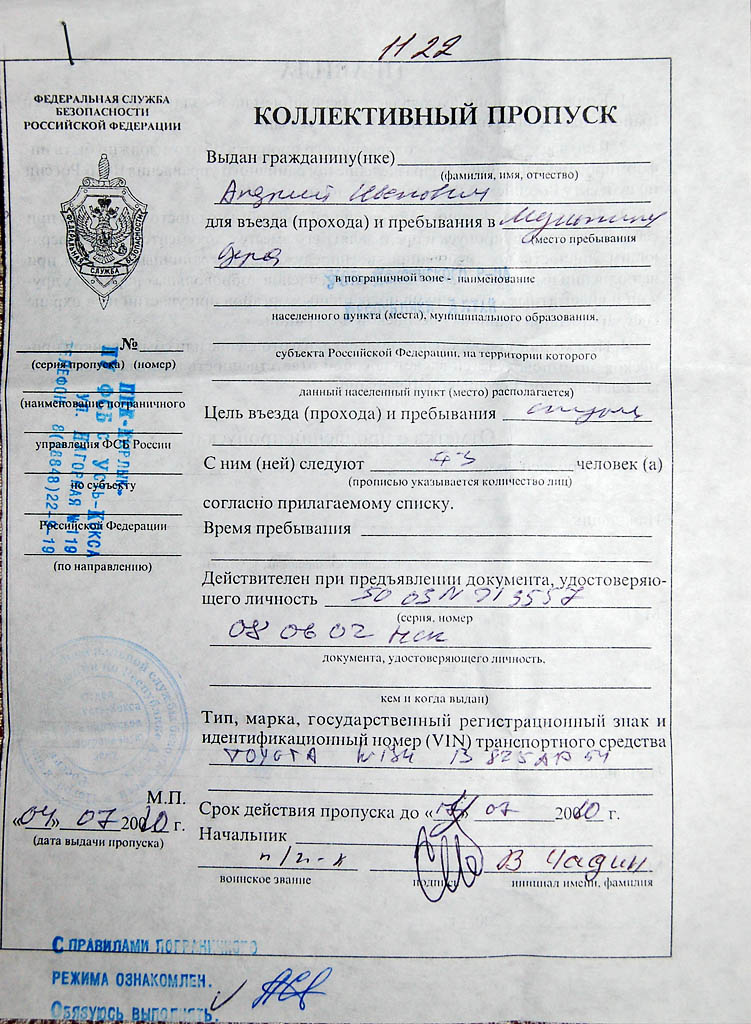 1122
ФЕДЕРАЛЬНАЯ СЛУЖБА
БЕЗОПАСНОСТИ
РОССИЙСКОЙ ФЕДЕРАЦИИ
ФЕДЕРАЛЬНАЯ СЛУЖБА БЕЗОПАСНОСТИ
№
(серия пропуска) (номер)
(наименование пограничного
управления ФСБ России
по субъекту
Российской Федерации
(по направлению)
ПУ ФСБ с УСТЬ-КОКСА
УЛ. НАГОРНАЯ
ТЕЛЕФОН 8(38848)22-6-19
М.П.
«04» 07 2010 г.
(дата выдачи пропуска)
КОЛЛЕКТИВНЫЙ ПРОПУСК
Выдан гражданину(нке)
(фамилия, имя, отчество)
Андрей Иванович
для въезда (прохода) и пребывания в
(место пребывания
в пограничной зоне - наименование
населенного пункта (места), муниципального образования,
субъекта Российской Федерации, на территории которого
данный населенный пункт (место) располагается)
Цель въезда (прохода) и пребывания
С ним (ней) следуют человек (а)
(прописью указывается количество лиц)
согласно прилагаемому списку.
Время пребывания
Действителен при предъявлении документа, удостоверяю-
щего личность 50 03 N 913557
(серия, номер
08 06 02 НСК
документа, удостоверяющего личность,
кем и когда выдан)
Тип, марка, государственный регистрационный знак и
идентификационный номер (VIN) транспортного средства
TOYOTA В 825 АР 54
Срок действия пропуска до « » 07 2010 г.
Начальник
п/п-к В Чадин
воинское звание подпись инициал имени, фамилия
С ПРАВИЛАМИ ПОГРАНИЧНОГО
РЕЖИМА ОЗНАКОМЛЕН.
ОБЯЗУЮСЬ ВЫПОЛНЯТЬ.